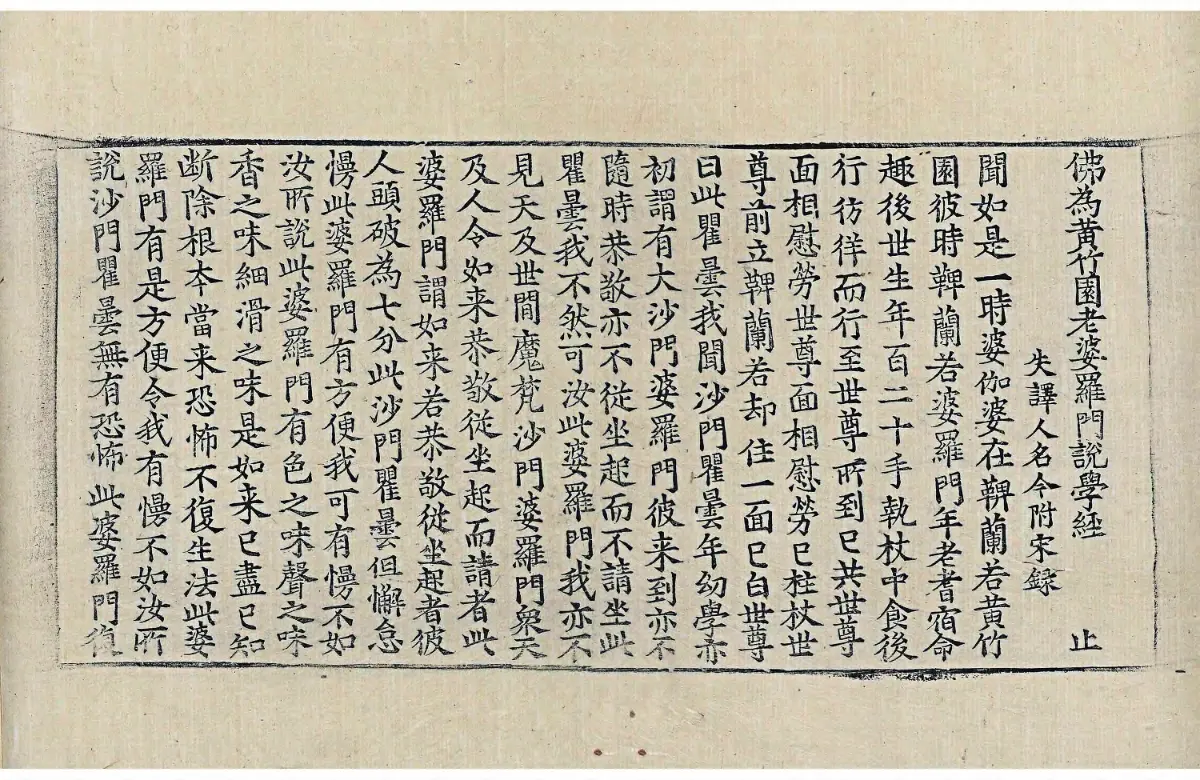 佛為黃竹園老婆羅門說學經 止
失譯人名今附宋錄
聞如是一時婆伽婆在鞞蘭若黃竹
園彼時鞞蘭若婆羅門年老耆宿命
趣後世生年百二十手執杖中食後
行彷徉而行至世尊所到已共世尊
面相慰勞世尊面相慰勞已柱杖世
尊前立鞞蘭若却住一面已白世尊
曰此瞿曇我聞沙門瞿曇年幼學亦
初謂有大沙門婆羅門彼来到亦不
隨時恭敬亦不從坐起而不請坐此
瞿曇我不然可汝此婆羅門我亦不
見天及世間魔梵沙門婆羅門眾天
及人令如来恭敬從坐起而請者此
婆羅門謂如来若恭敬從坐起者彼
人頭破為七分此沙門瞿曇但懈怠
慢此婆羅門有方便我可有慢不如
汝所說此婆羅門有色之味聲之味
香之味細滑之味是如来已盡已知
断除根本當来恐怖不復生法此婆
羅門有是方便令我有慢不如汝所
說沙門瞿曇無有恐怖此婆羅門復